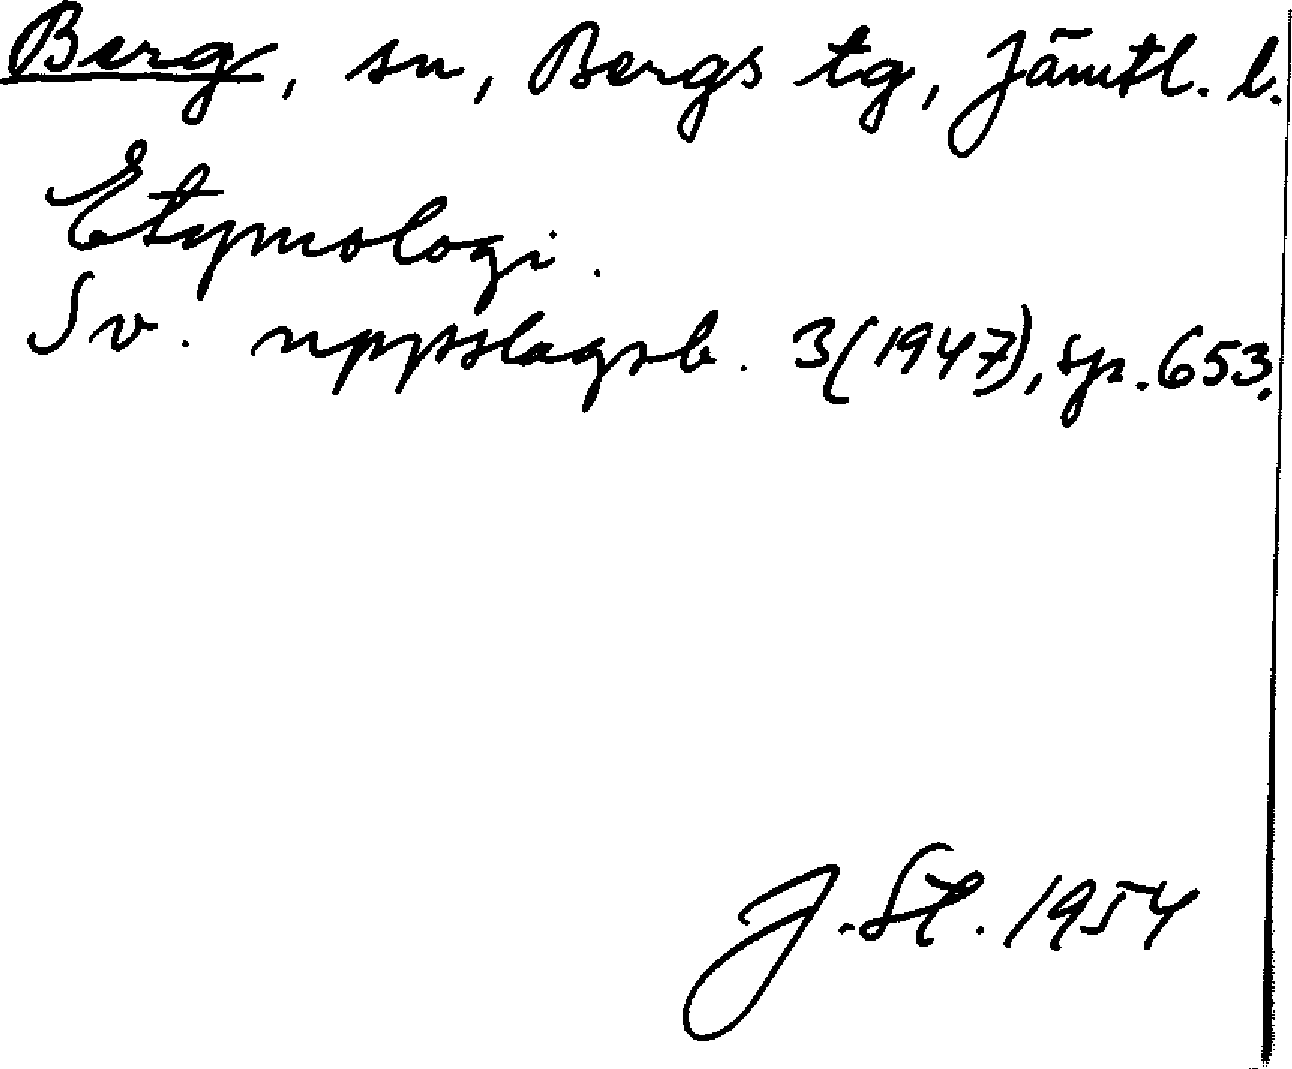 Berg, sn, Bergs tg, Jämtl. l.
Etymologi.
Sv. uppslagsb. 3(1947), sp. 653.
J. St. 1954